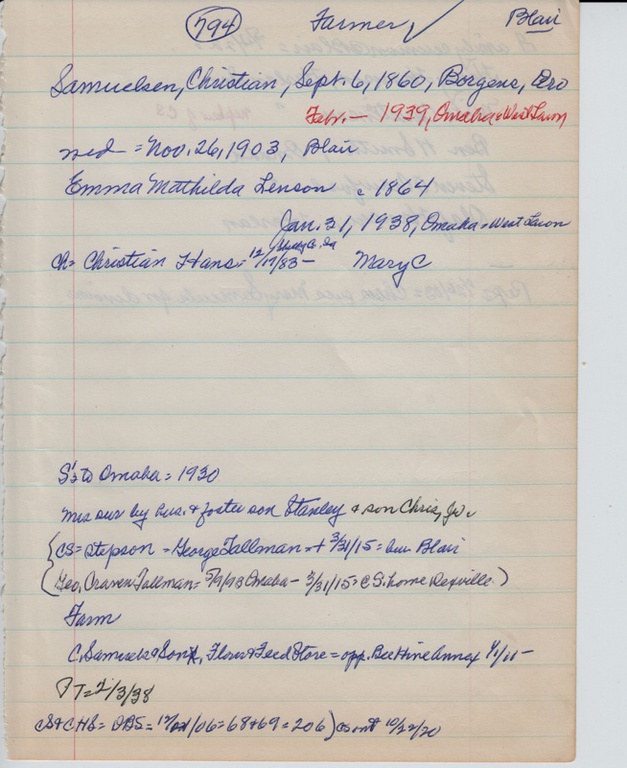 794 Farmer ✓ Blair
Samuelsen, Christian, Sept. 6, 1860, Borgens, Aero
Febr. — 1939, Omaha = West Lawn
wed = Nov. 26, 1903, Blair
Emma Mathilda Lenson c 1864
Jan. 31, 1938, Omaha = West Lawn
Ch = Christian Hans = 12/17/83 — Mary C
S's to Omaha = 1930
Mrs sur by hus. & foster son Stanley & son Chris, Jr.
{CS = stepson = George Tallman = + 3/31/15 = bur Blair
(Geo. Craven Tallman = 5/9/93 Omaha — 3/31/15 = CS. home )
Farm
C. Samuels & Son, Flour & Feed Store = opp. Bee Hive Annex 4/1/11 —
PT = 2/3/38
CS & CHS = DBS = /06 = 68 & 69 = 206) CS 10/22/20